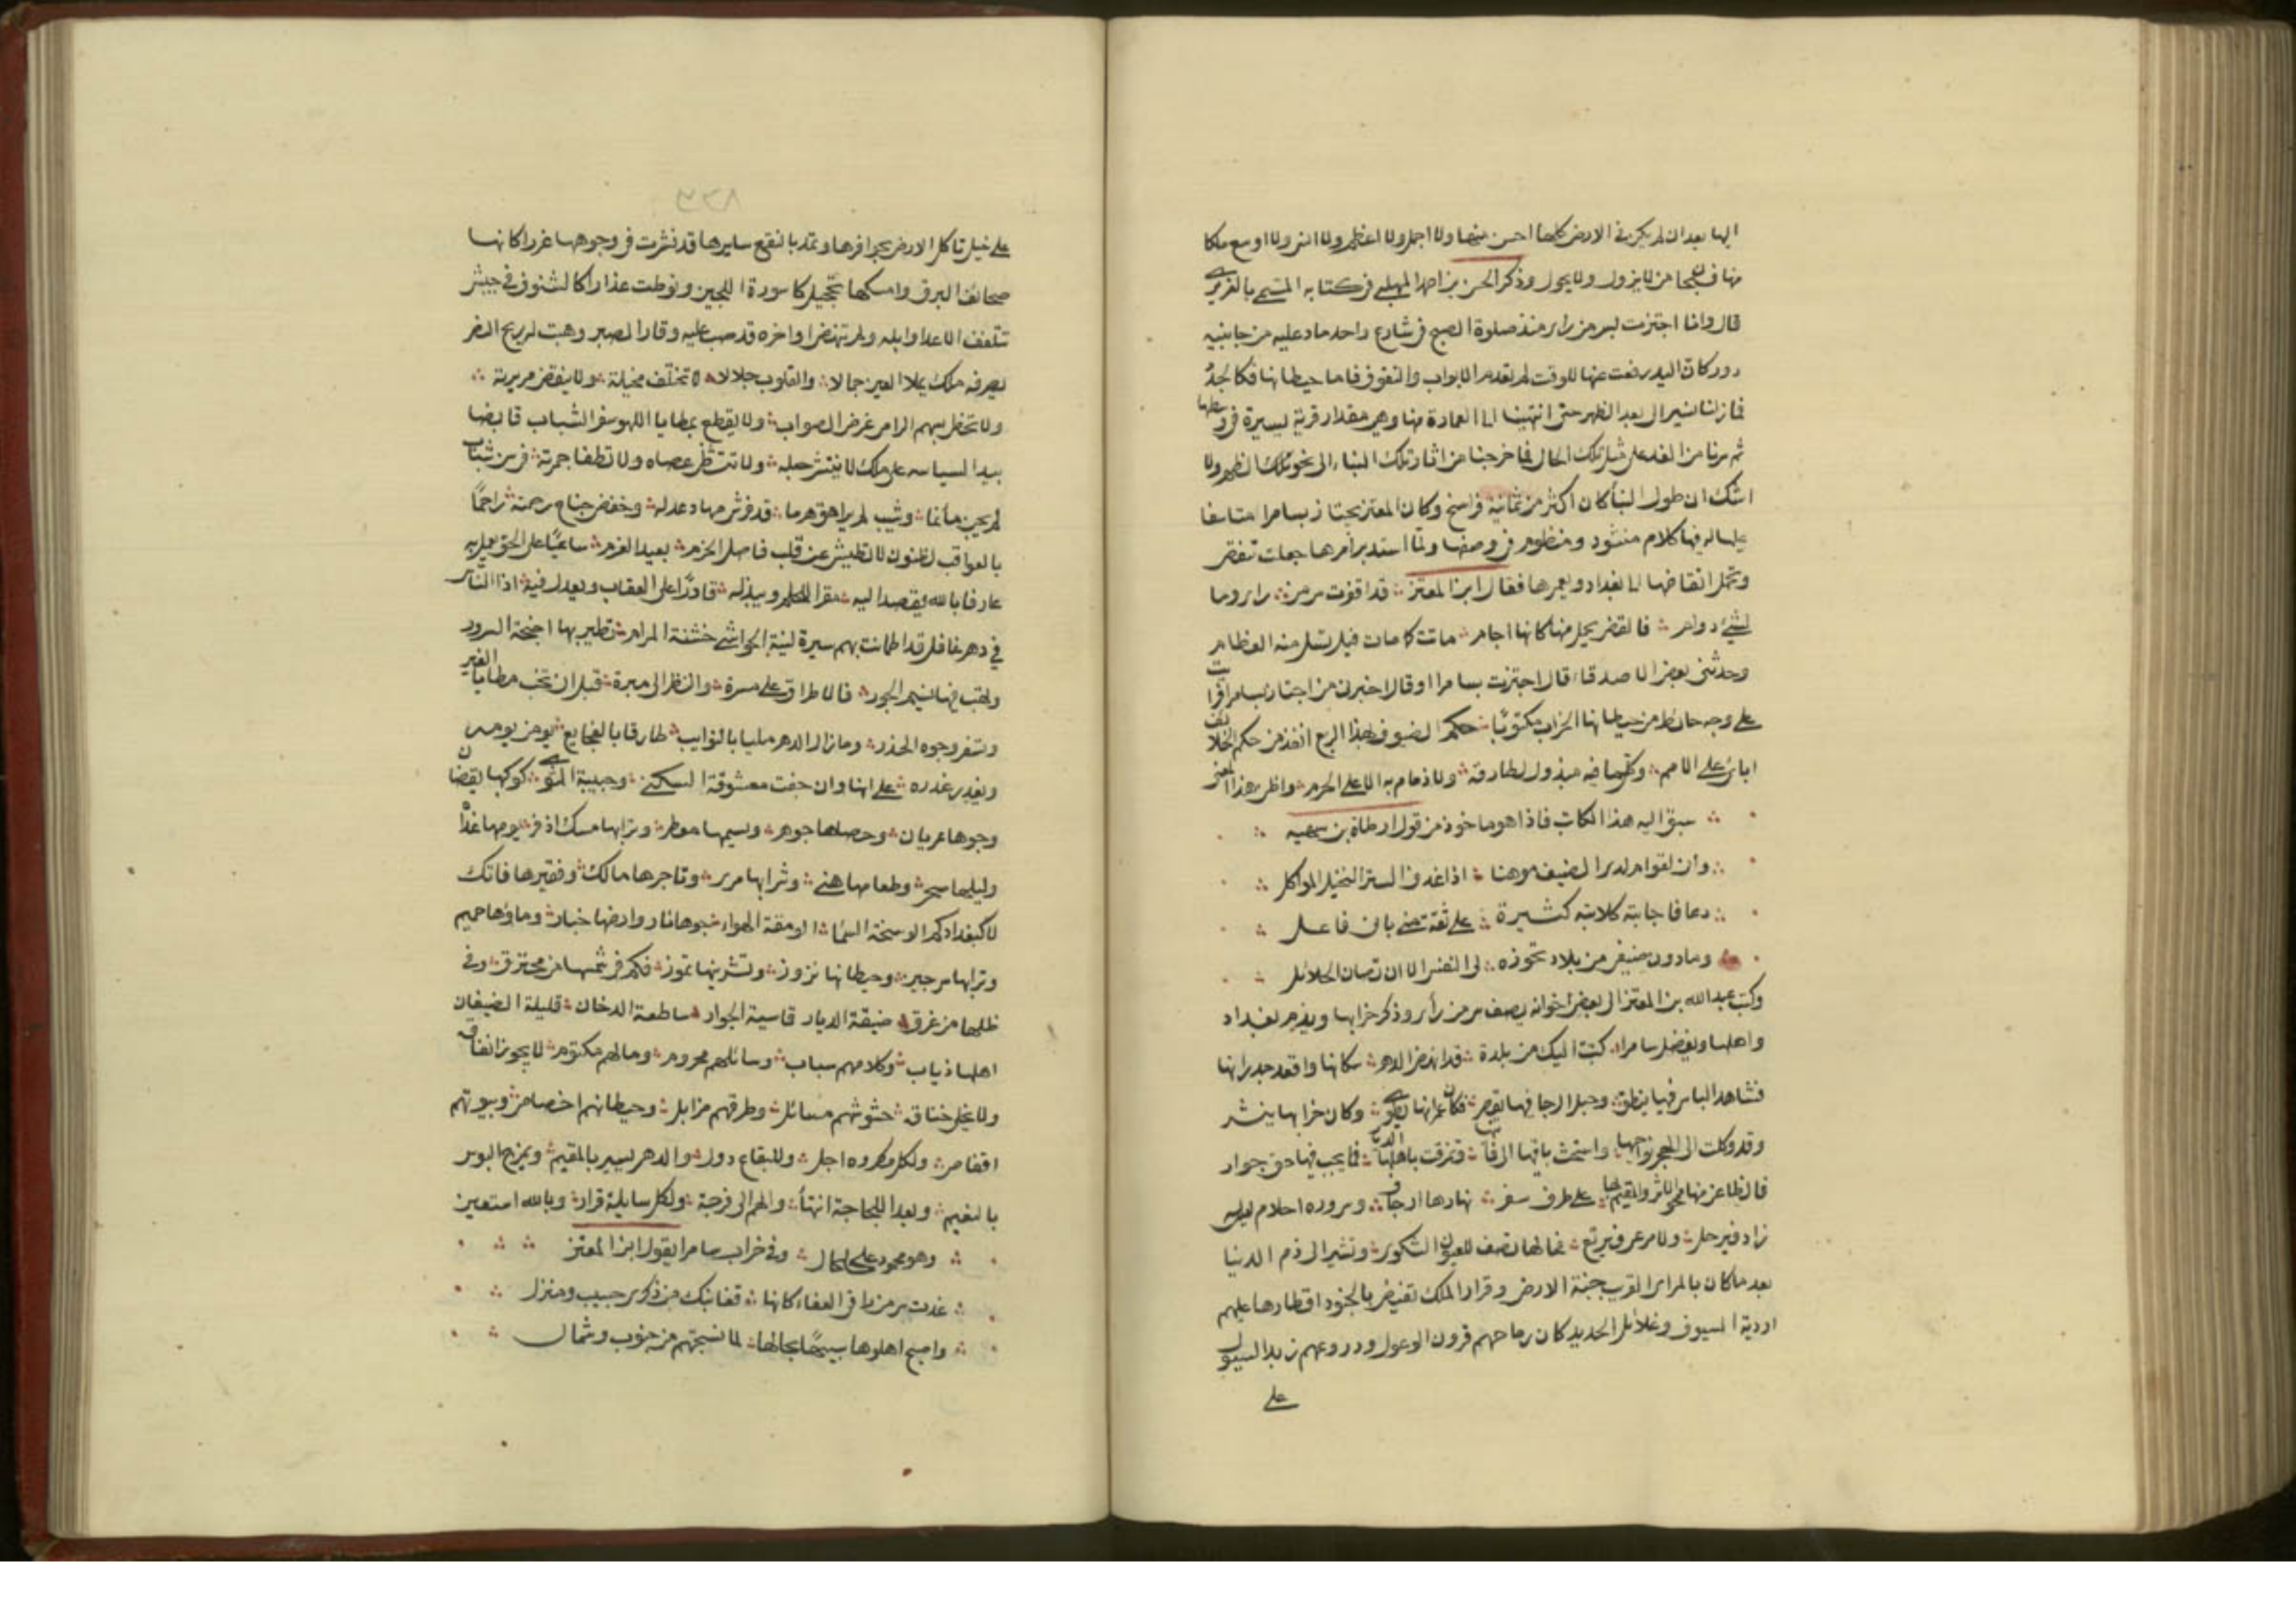 اليها بعد ان لم يكن في الارض كلها احسن منها ولا اجمل ولا اعظم ولا انس ولا اوسع ملكا
منها فسبحان من لا يزول ولا يحول وذكر الحسن بن احمد المهلبي في كتابه المسمى بالعزيزي
قال وانا اجتزت بسر من راى منذ صلوة الصبح في شارع واحد ماد عليه من جانبيه
دور كان اليد رفعت عنها للوقت لم تعدم الا الابواب والسقوف فاما حيطانها فكالجدد
فما زلنا نسير الى بعد الظهر حتى انتهينا الى العمارة منها وهي مقدار قرية يسيرة في وسطها
ثم سرنا من الغد على مثل تلك الحال فما خرجنا من اثار تلك البناء الى نحو تلك الظهر ولا
اشك ان طول البنأ كان اكثر من ثمانية فراسخ وكان المعتز مجتاز بسامرا متاسفا
عليها له فيها كلام منثور ومنظوم في وصفها ولما استدبر امرها جعلت تنقض
وتحمل انقاضها الى بغداد ويعمر بها فقال ابن المعتز قد اقفرت سر من راى وما
لشئ دوام فالنقض يحمل منها كانها اجام ماتت كما مات فيل تسل منه العظام
وحدثني بعض الاصدقا قال اجتزت بسامرا او قال اخبرني من اجتاز بسامرا قرات
على وجه حائط من حيطانها الخراب مكتوبًا حكم الضيوف بهذا الربع انفذ من حكم الخلائف
ابائى على الامم وكلما فيه مبذول لطارقه ولا ذمام به الا على الحرم واظن هذا المعنى
سبق اليه هذا الكاتب فاذا هو ماخوذ من قول ارطاة بن سهية
وان لقوام لدى الضيف موهنا اذا اغدف الستر البخيل المواكل
دعا فاجابته كلابه كثيرة على ثقة مني بان فاعل
وما دون ضيفي من بلاد تحوزه لى النفس الا ان تصان الحلائل
وكتب عبد الله بن المعتز الى بعض اخوانه يصف سر من رأى وذكر خرابها ويذم بغداد
واهلها ويفضل سامرا كتبت اليك من بلدة قد انهض الدهر سكانها واقعد جدرانها
فشاهد الياس فيها ينطق وحبل الرجا فيها يقصر فكان عمرانها يطوى وكان خرابها ينشر
وقد وكلت الى الهجر نواحيها واستحث باقيها الى فنا وتمزقت باهلها الديار فما يجب فيها حق جوار
فالظاعن منها ممحو الاثر والمقيم بها على طرف سفر نهاره ارجاف وسروره احلام ليس
زاد فيرحل ولا مرعى فيرتع فحالها تصف للعيون الشكوى وتشير الى ذم الدنيا
بعد ما كان بالمرأى القريب جنة الارض وقرار الملك تفيض بالجنود اقطارها عليهم
اردية السيوف وغلائل الحديد كان رماحهم قرون الوعول ودروعهم زبد السيول
على
٨٢٣
على خيل تاكل الارض بحوافرها وتمد بالنقع سايرها قد نشرت في وجوهها غررا كانها
صحائف البرق وامسكها تحجيل كاسورة اللجين ونوطت عذارا كالشنوف في جيش
تتلقف الاعدا اوايله ولم تنهض اواخره قد صب عليه وقار الصبر وهبت له ريح النصر
يصرفه ملك يملا العين جمالا والقلوب جلالا لا تختلف مخيلة ولا ينقض مريرته
ولا تخطى بسهم الراى غرض الصواب ولا يقطع بمطايا اللهو سفر الشباب قابضا
بيد السياسه على ملك لا ينتشر حبله ولا تتشظى عصاه ولا تطفا جمرته في سن شباب
لم يجن مأثما وشيب لم يراهق هرما قد فرش مهاد عدله وخفض جناح رحمته راجمًا
بالعواقب لظنون لا تطيش عن قلب فاضل الحزم بعيد العزم ساعيًا على الحق يعمل به
عارفا بالله يقصد اليه مقرا للحلم ويبذله قادرًا على العقاب ويعدل فيه اذ الناس
في دهر غافل قد اطمانت بهم سيرة لينة الحواشي خشنة المرام تطير بها اجنحة السرور
ولهب فيها نسيم الحبور فالاطراق على مسرة والنظر الى مبرة قبل ان تخب مطايا الغير
وتسفر وجوه الحذر وما زال الدهر مليا بالنوايب طارقا بالفجايع يومن يومه
ويغدر غدره على انها وان جفت معشوقة السكنى وحبيبة المثوى كوكبها يقظان
وجوها عريان وحصاها جوهر ونسيمها معطر وترابها مسك اذفر يومها غداة
وليلها سحر وطعامها هني وشرابها مري وتاجرها مالك وفقيرها فاتك
لا كبغدادكم الوسخة السما الومقة الهواء جوها نار وارضها خبار وماؤها حميم
وترابها سرجين وحيطانها نزوز وتشرينها تموز فكم في شمسها من محترق وفي
ظلها من غرق ضيقة الديار قاسية الجوار ساطعة الدخان قليلة الضيفان
اهلها ذياب وكلامهم سباب وسائلهم محروم ومالهم مكتوم لا يجوز انفاق
ولا يحل خناق حشوشهم مسائل وطرقهم مزابل وحيطانهم اخصاص وبيوتهم
اقفاص ولكل مكروه اجل وللبقاع دول والدهر يسير بالمقيم ويمزج البوس
بالنعيم وبعد اللجاجة انتهأ والهم الى فرجة ولكل سايلة قرار وبالله استعين
وهو محمود على كل حال وفي خراب سامرا يقول ابن المعتز
غدت سر من را في العفاء كانها قفا نبك من ذكرى حبيب ومنزل
واصبح اهلوها شبيها بحالها لما نسجتهم من جنوب وشمال